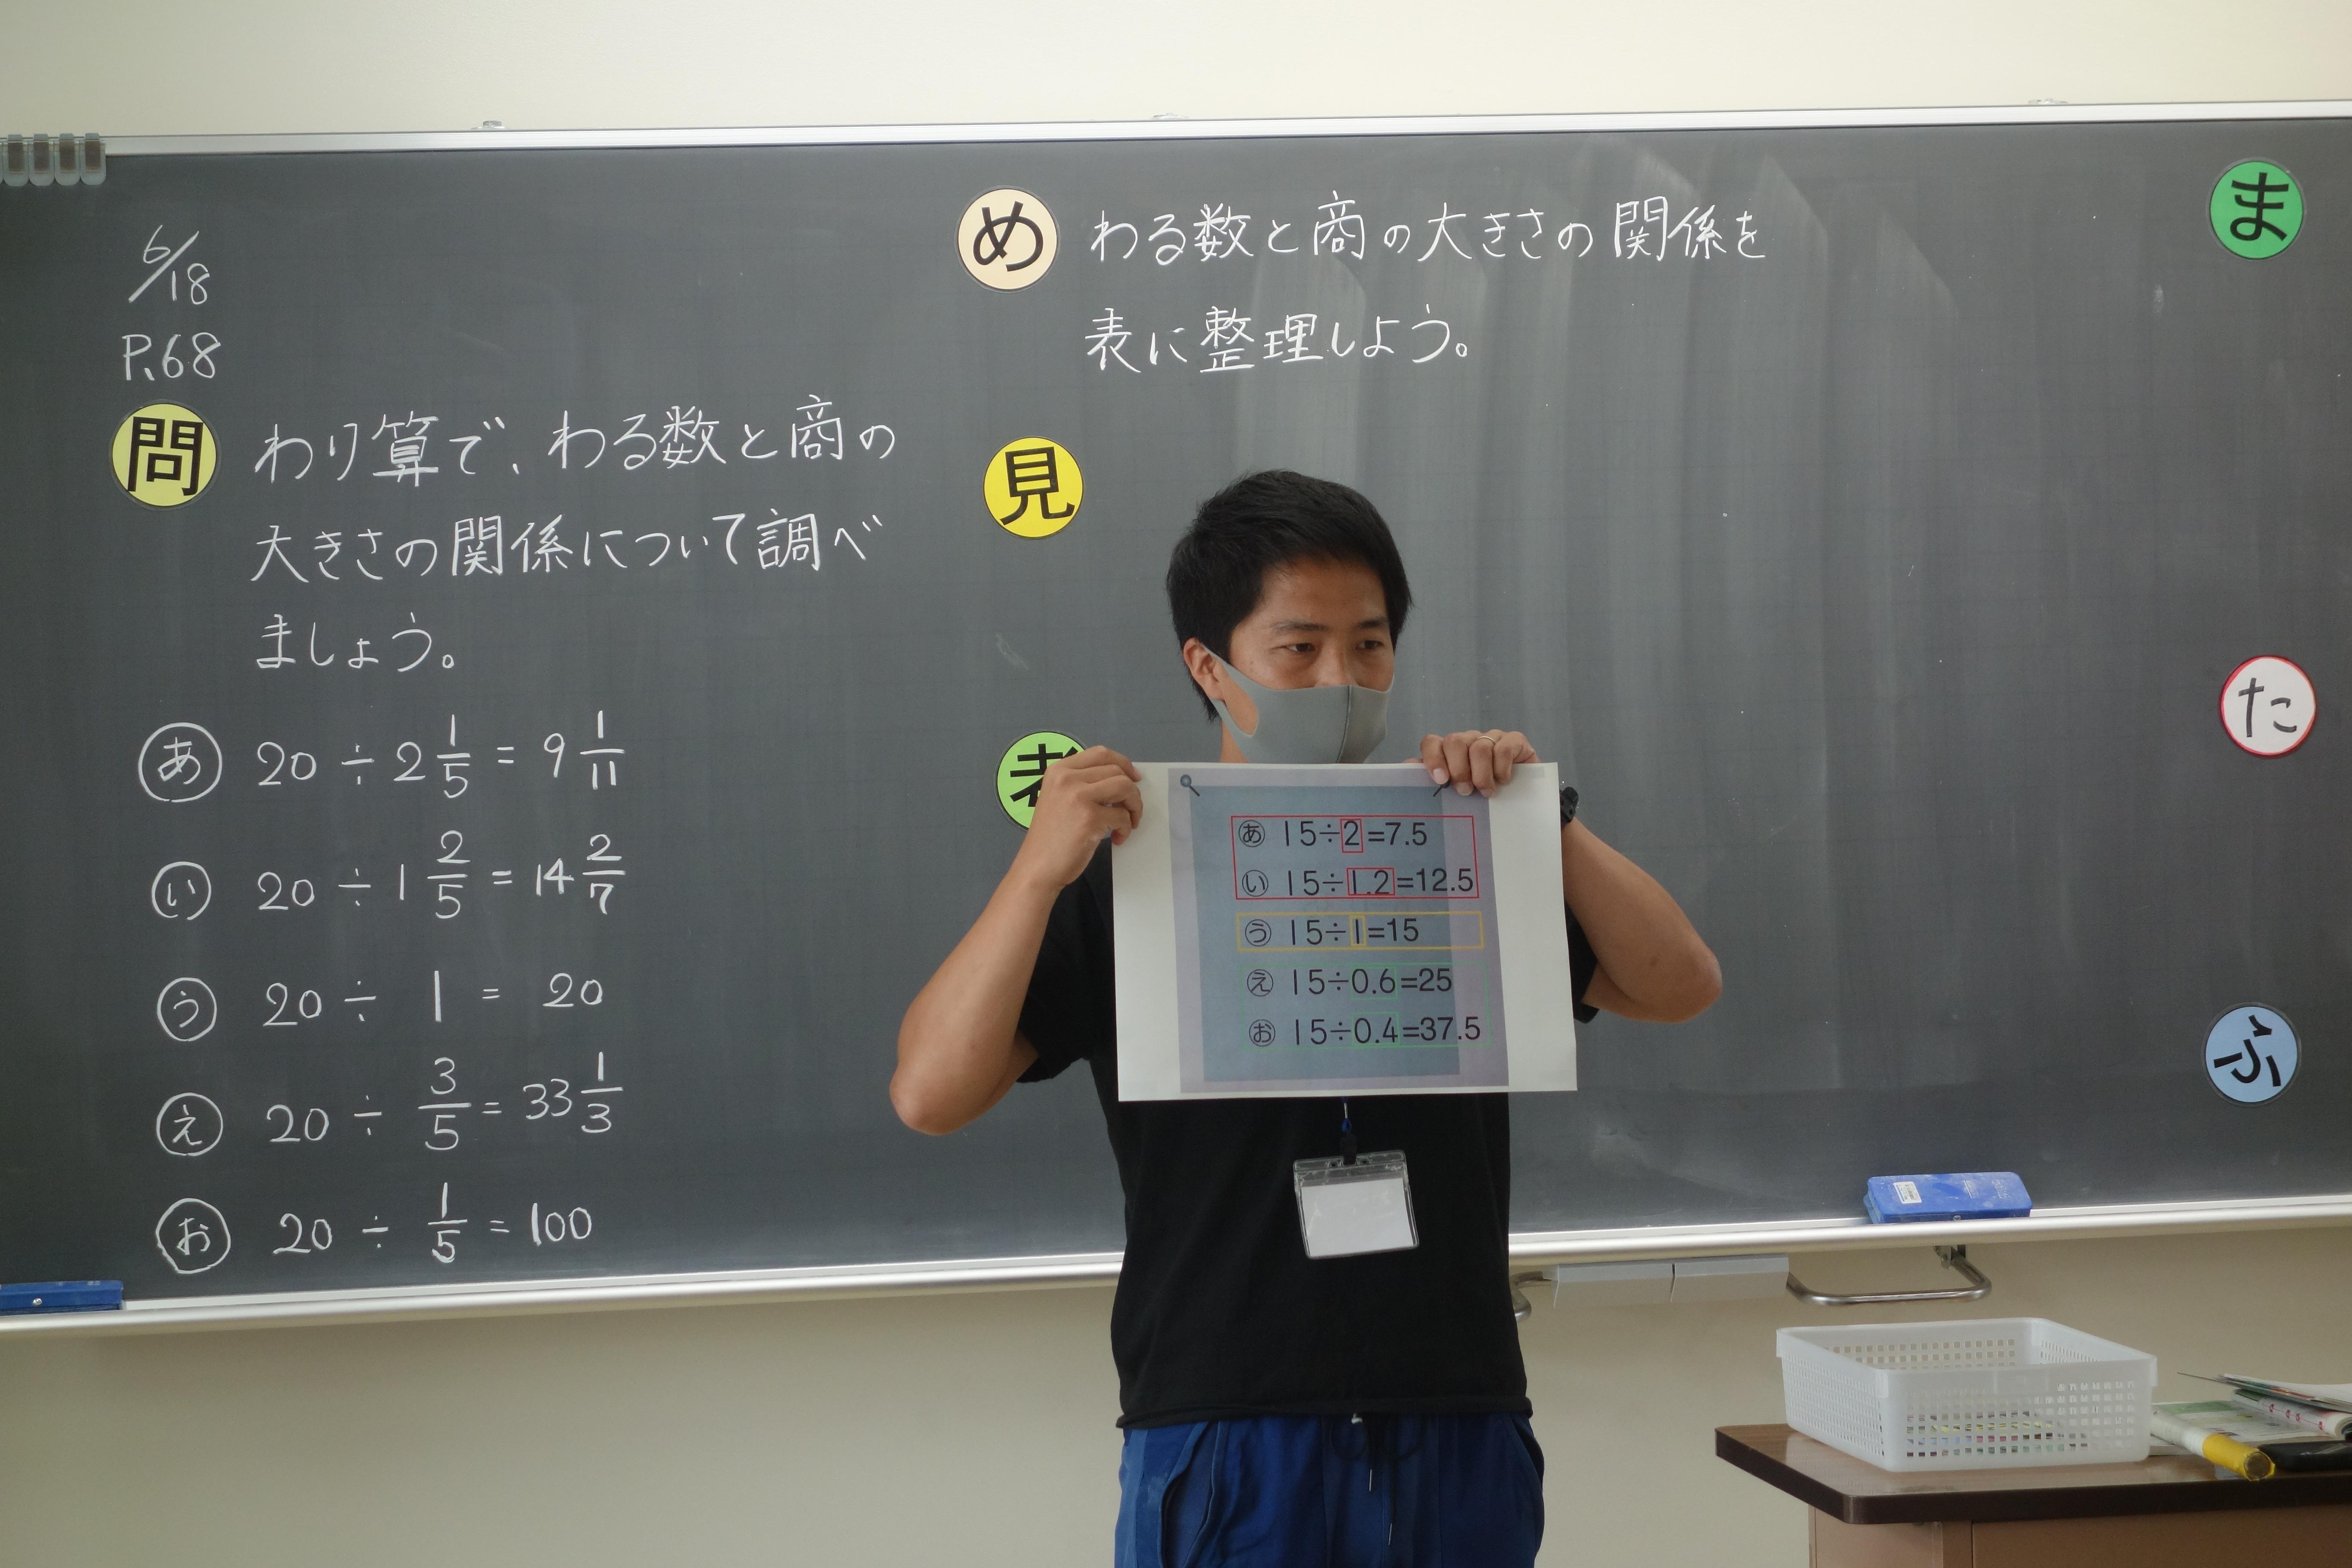 6/18
P.68
問 わり算で、わる数と商の
大きさの関係について調べ
ましょう。
あ 20 ÷ 2 1/5 = 9 1/11
い 20 ÷ 1 2/5 = 14 2/7
う 20 ÷ 1 = 20
え 20 ÷ 3/5 = 33 1/3
お 20 ÷ 1/5 = 100
め わる数と商の大きさの関係を
表に整理しよう。
見
考
あ 15÷2=7.5
い 15÷1.2=12.5
う 15÷1=15
え 15÷0.6=25
お 15÷0.4=37.5
ま
た
ふ